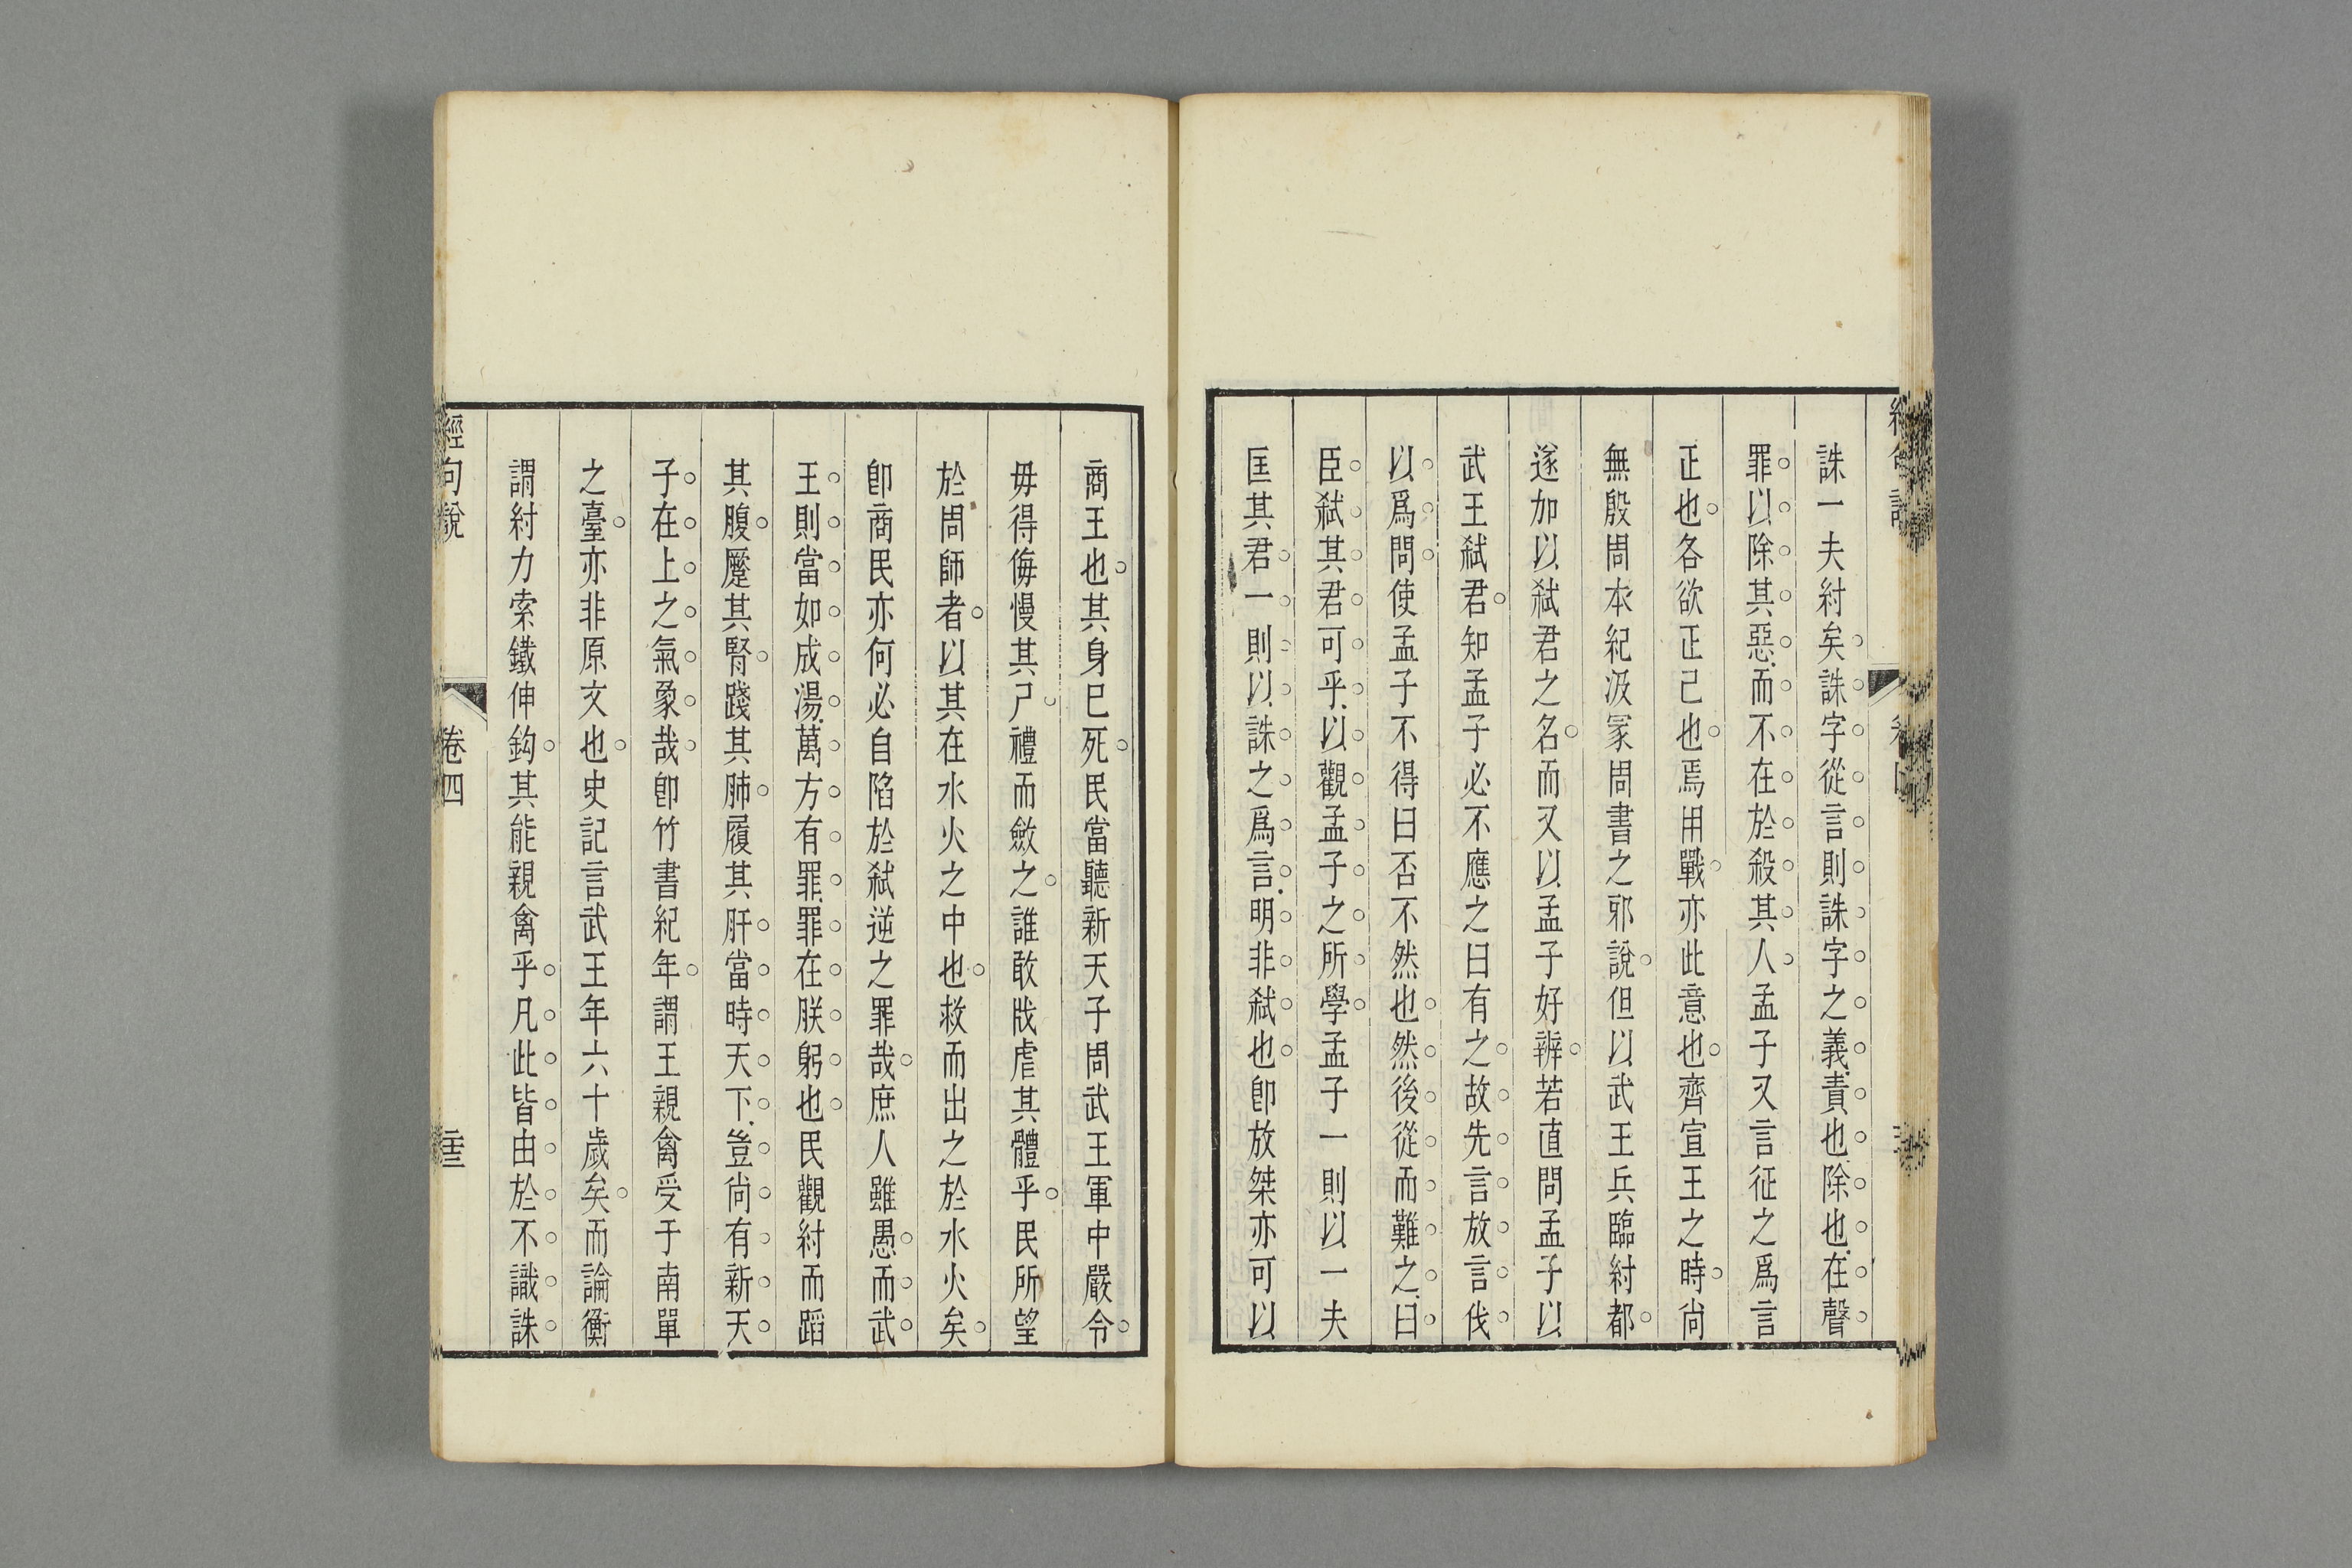 誅一夫紂矣誅字從言則誅字之義責也除也在聲
罪以除其惡而不在於殺其人孟子又言征之爲言
正也各欲正己也焉用戰亦此意也齊宣王之時尙
無殷周本紀汲冢周書之邪說但以武王兵臨紂都
遂加以弑君之名而又以孟子好辨若直問孟子以
武王弑君知孟子必不應之曰有之故先言放言伐
以爲問使孟子不得曰否不然也然後從而難之曰
臣弑其君可乎以觀孟子之所學孟子一則以一夫
匡其君一則以誅之爲言明非弑也卽放桀亦可以
商王也其身已死民當聽新天子周武王軍中嚴令
毋得侮慢其尸禮而斂之誰敢戕虐其體乎民所望
於周師者以其在水火之中也救而出之於水火矣
卽商民亦何必自陷於弑逆之罪哉庶人雖愚而武
王則當如成湯萬方有罪罪在朕躬也民觀紂而蹈
其腹蹷其腎踐其肺履其肝當時天下豈尙有新天
子在上之氣象哉卽竹書紀年謂王親禽受于南單
之臺亦非原文也史記言武王年六十歲矣而論衡
謂紂力索鐵伸鈎其能親禽乎凡此皆由於不識誅
經句說
卷四